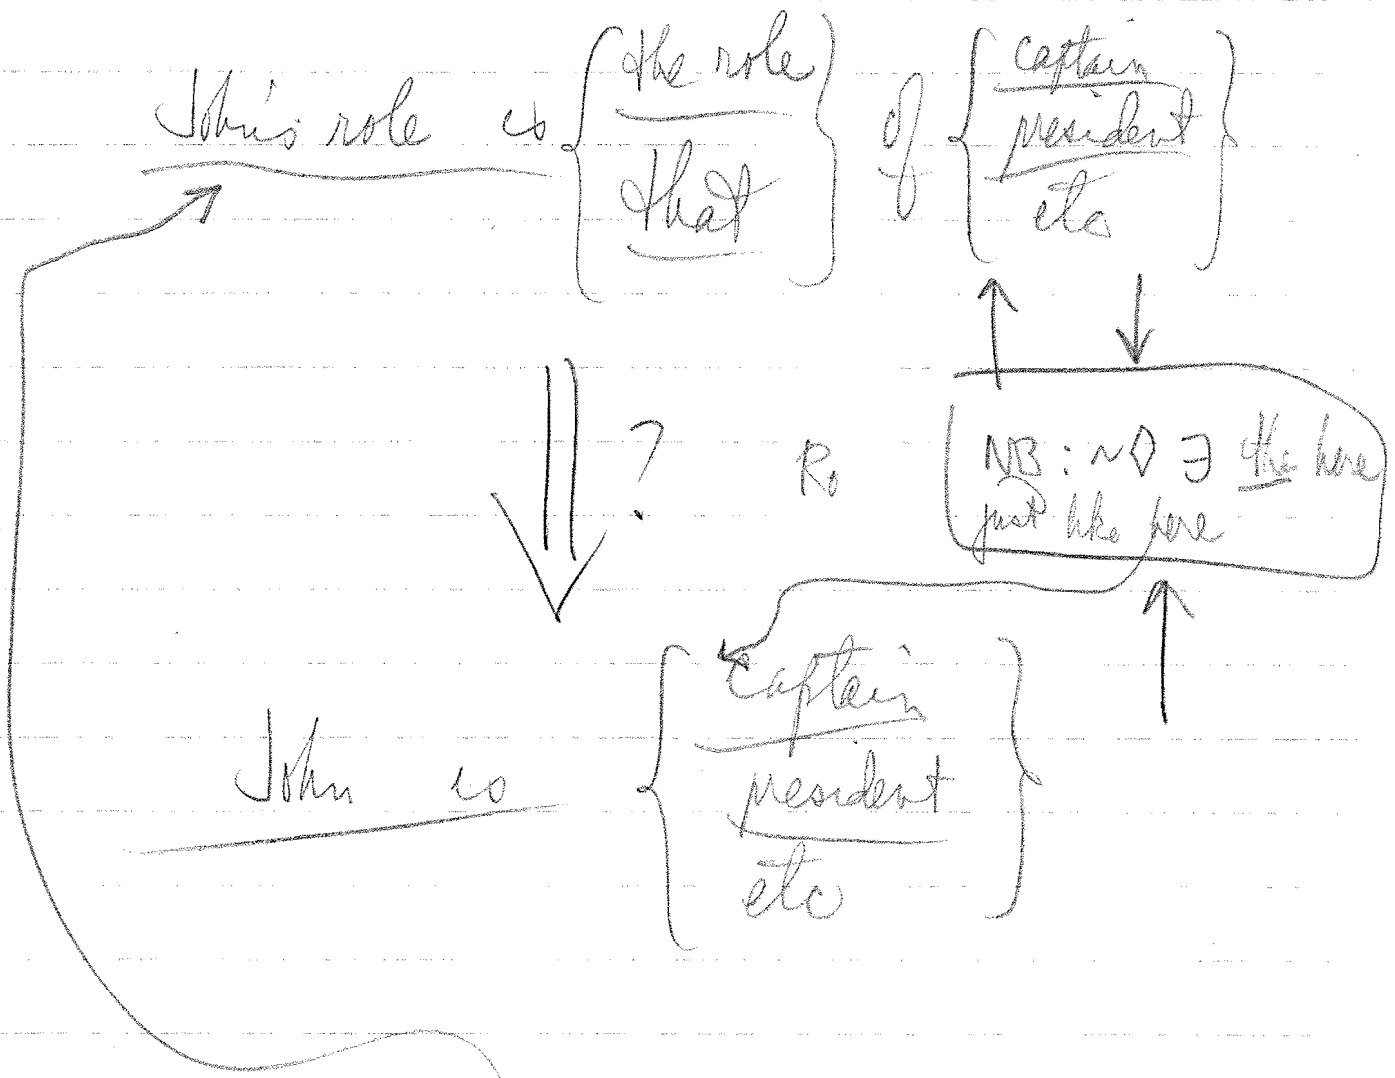 John's role is { the role / that } of { captain / president / etc }
⇓ ?
NB: ~◇ ∃ the here
just like here
John is { captain / president / etc }